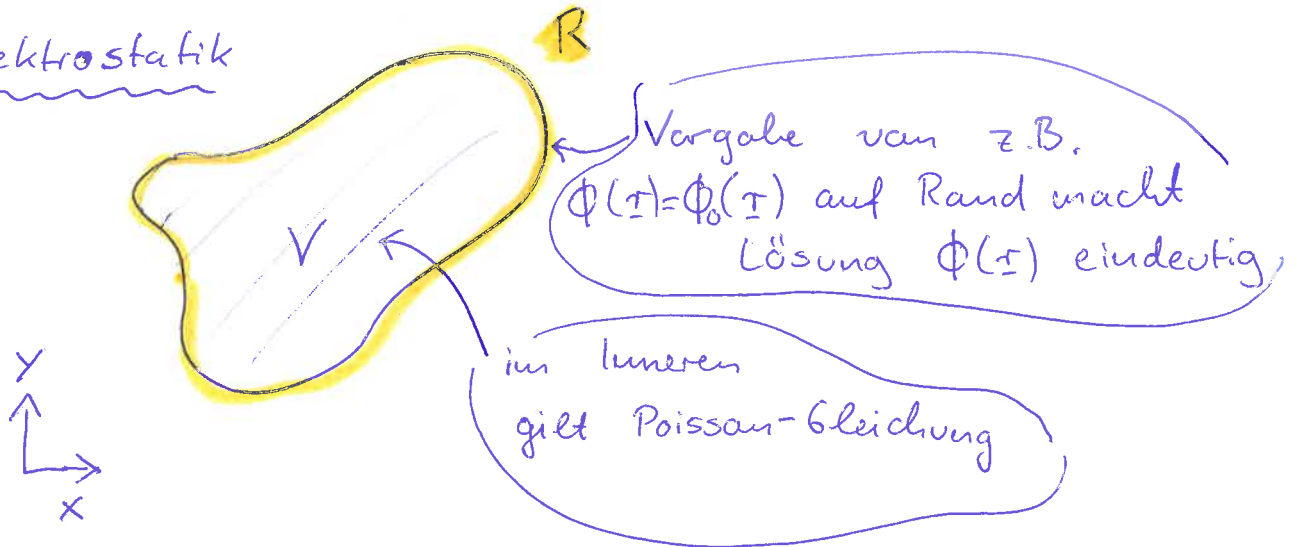 ektrostatik
R
Vorgabe von z.B.
ϕ(r)=ϕ₀(r) auf Rand macht
Lösung ϕ(r) eindeutig
V
im Inneren
gilt Poisson-Gleichung
y
x